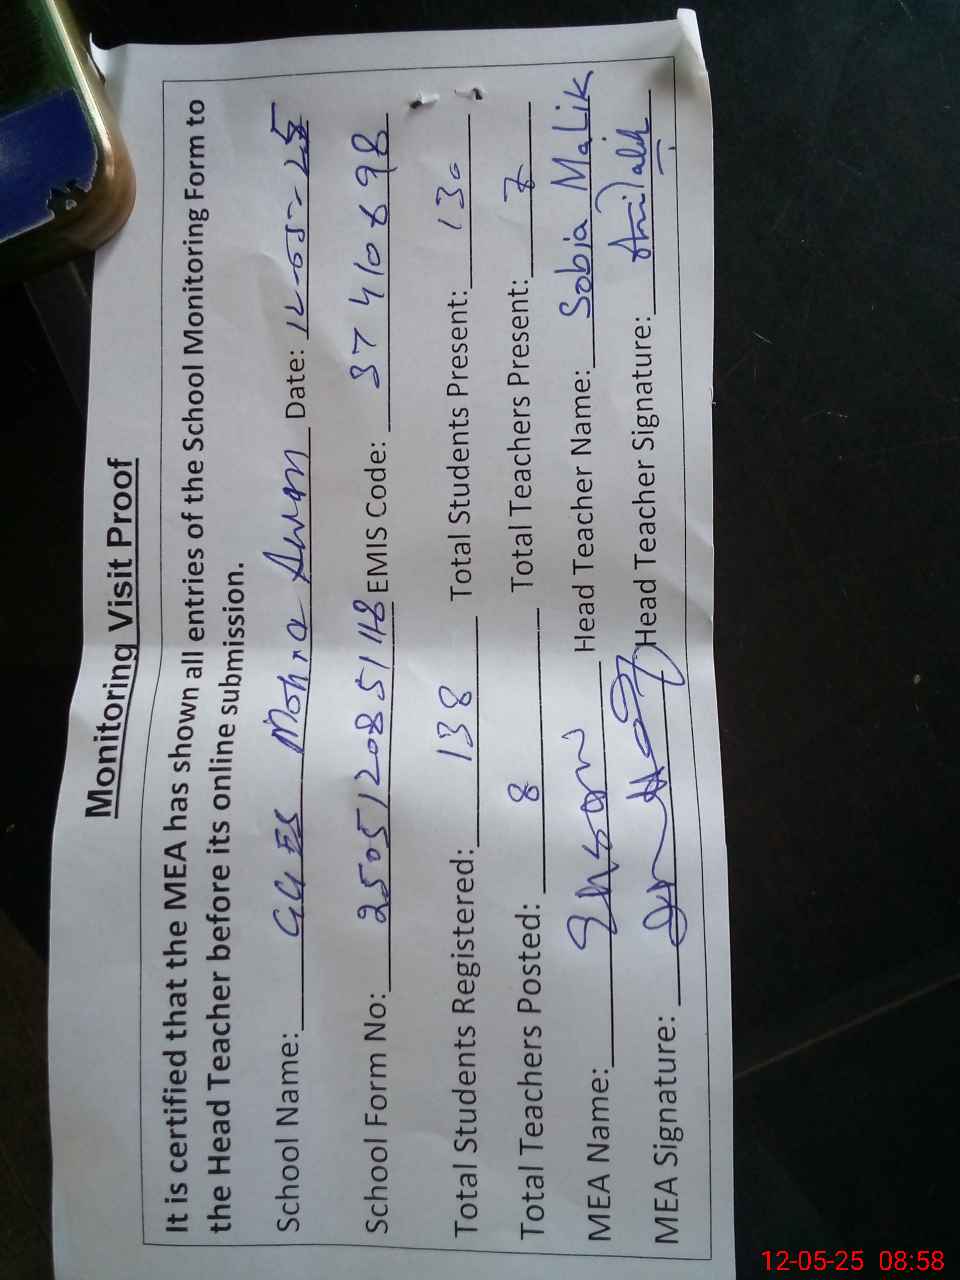 Monitoring Visit Proof
It is certified that the MEA has shown all entries of the School Monitoring Form to
the Head Teacher before its online submission.
School Name: GGES Mohra Awan Date: 12-05-25
School Form No: 250512085118 EMIS Code: 37410698
Total Students Registered: 138 Total Students Present: 130
Total Teachers Posted: 8 Total Teachers Present: 7
MEA Name: Head Teacher Name: Sobia Malik
MEA Signature: Head Teacher Signature:
12-05-25 08:58